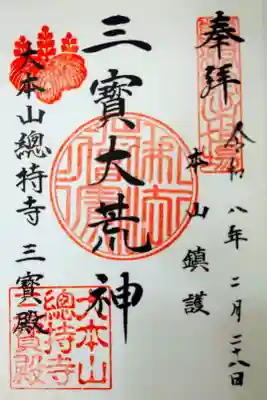 奉拜
令和八年二月二十八日
本山鎮護
三寶大荒神
大本山總持寺 三寶殿
大本山
總持寺
三寶殿